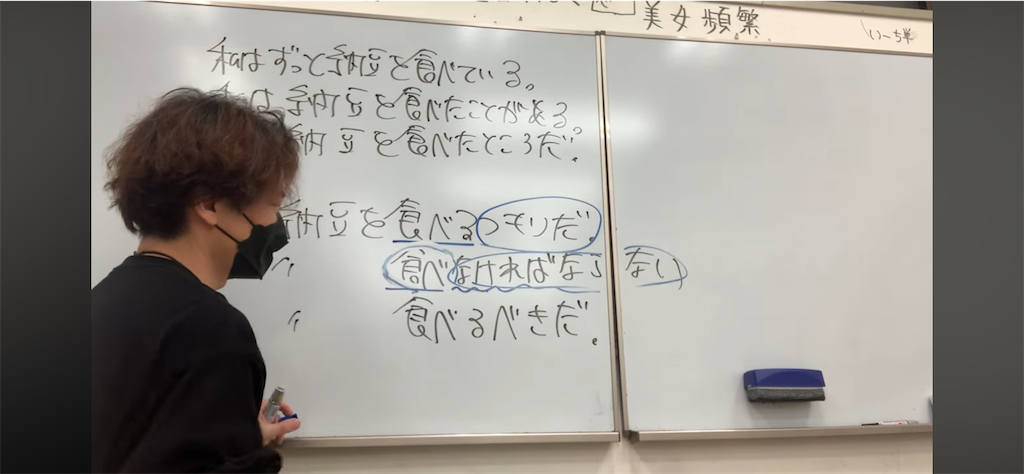 美女頻繁
いーち単
私はずっと納豆を食べている。
は納豆を食べたことがある。
納豆を食べたところだ。
納豆を食べるつもりだ。
〃 食べなければならない
〃 食べるべきだ。